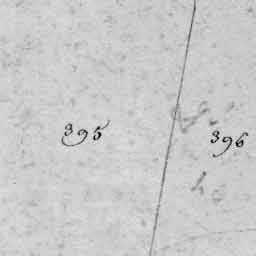 395
396